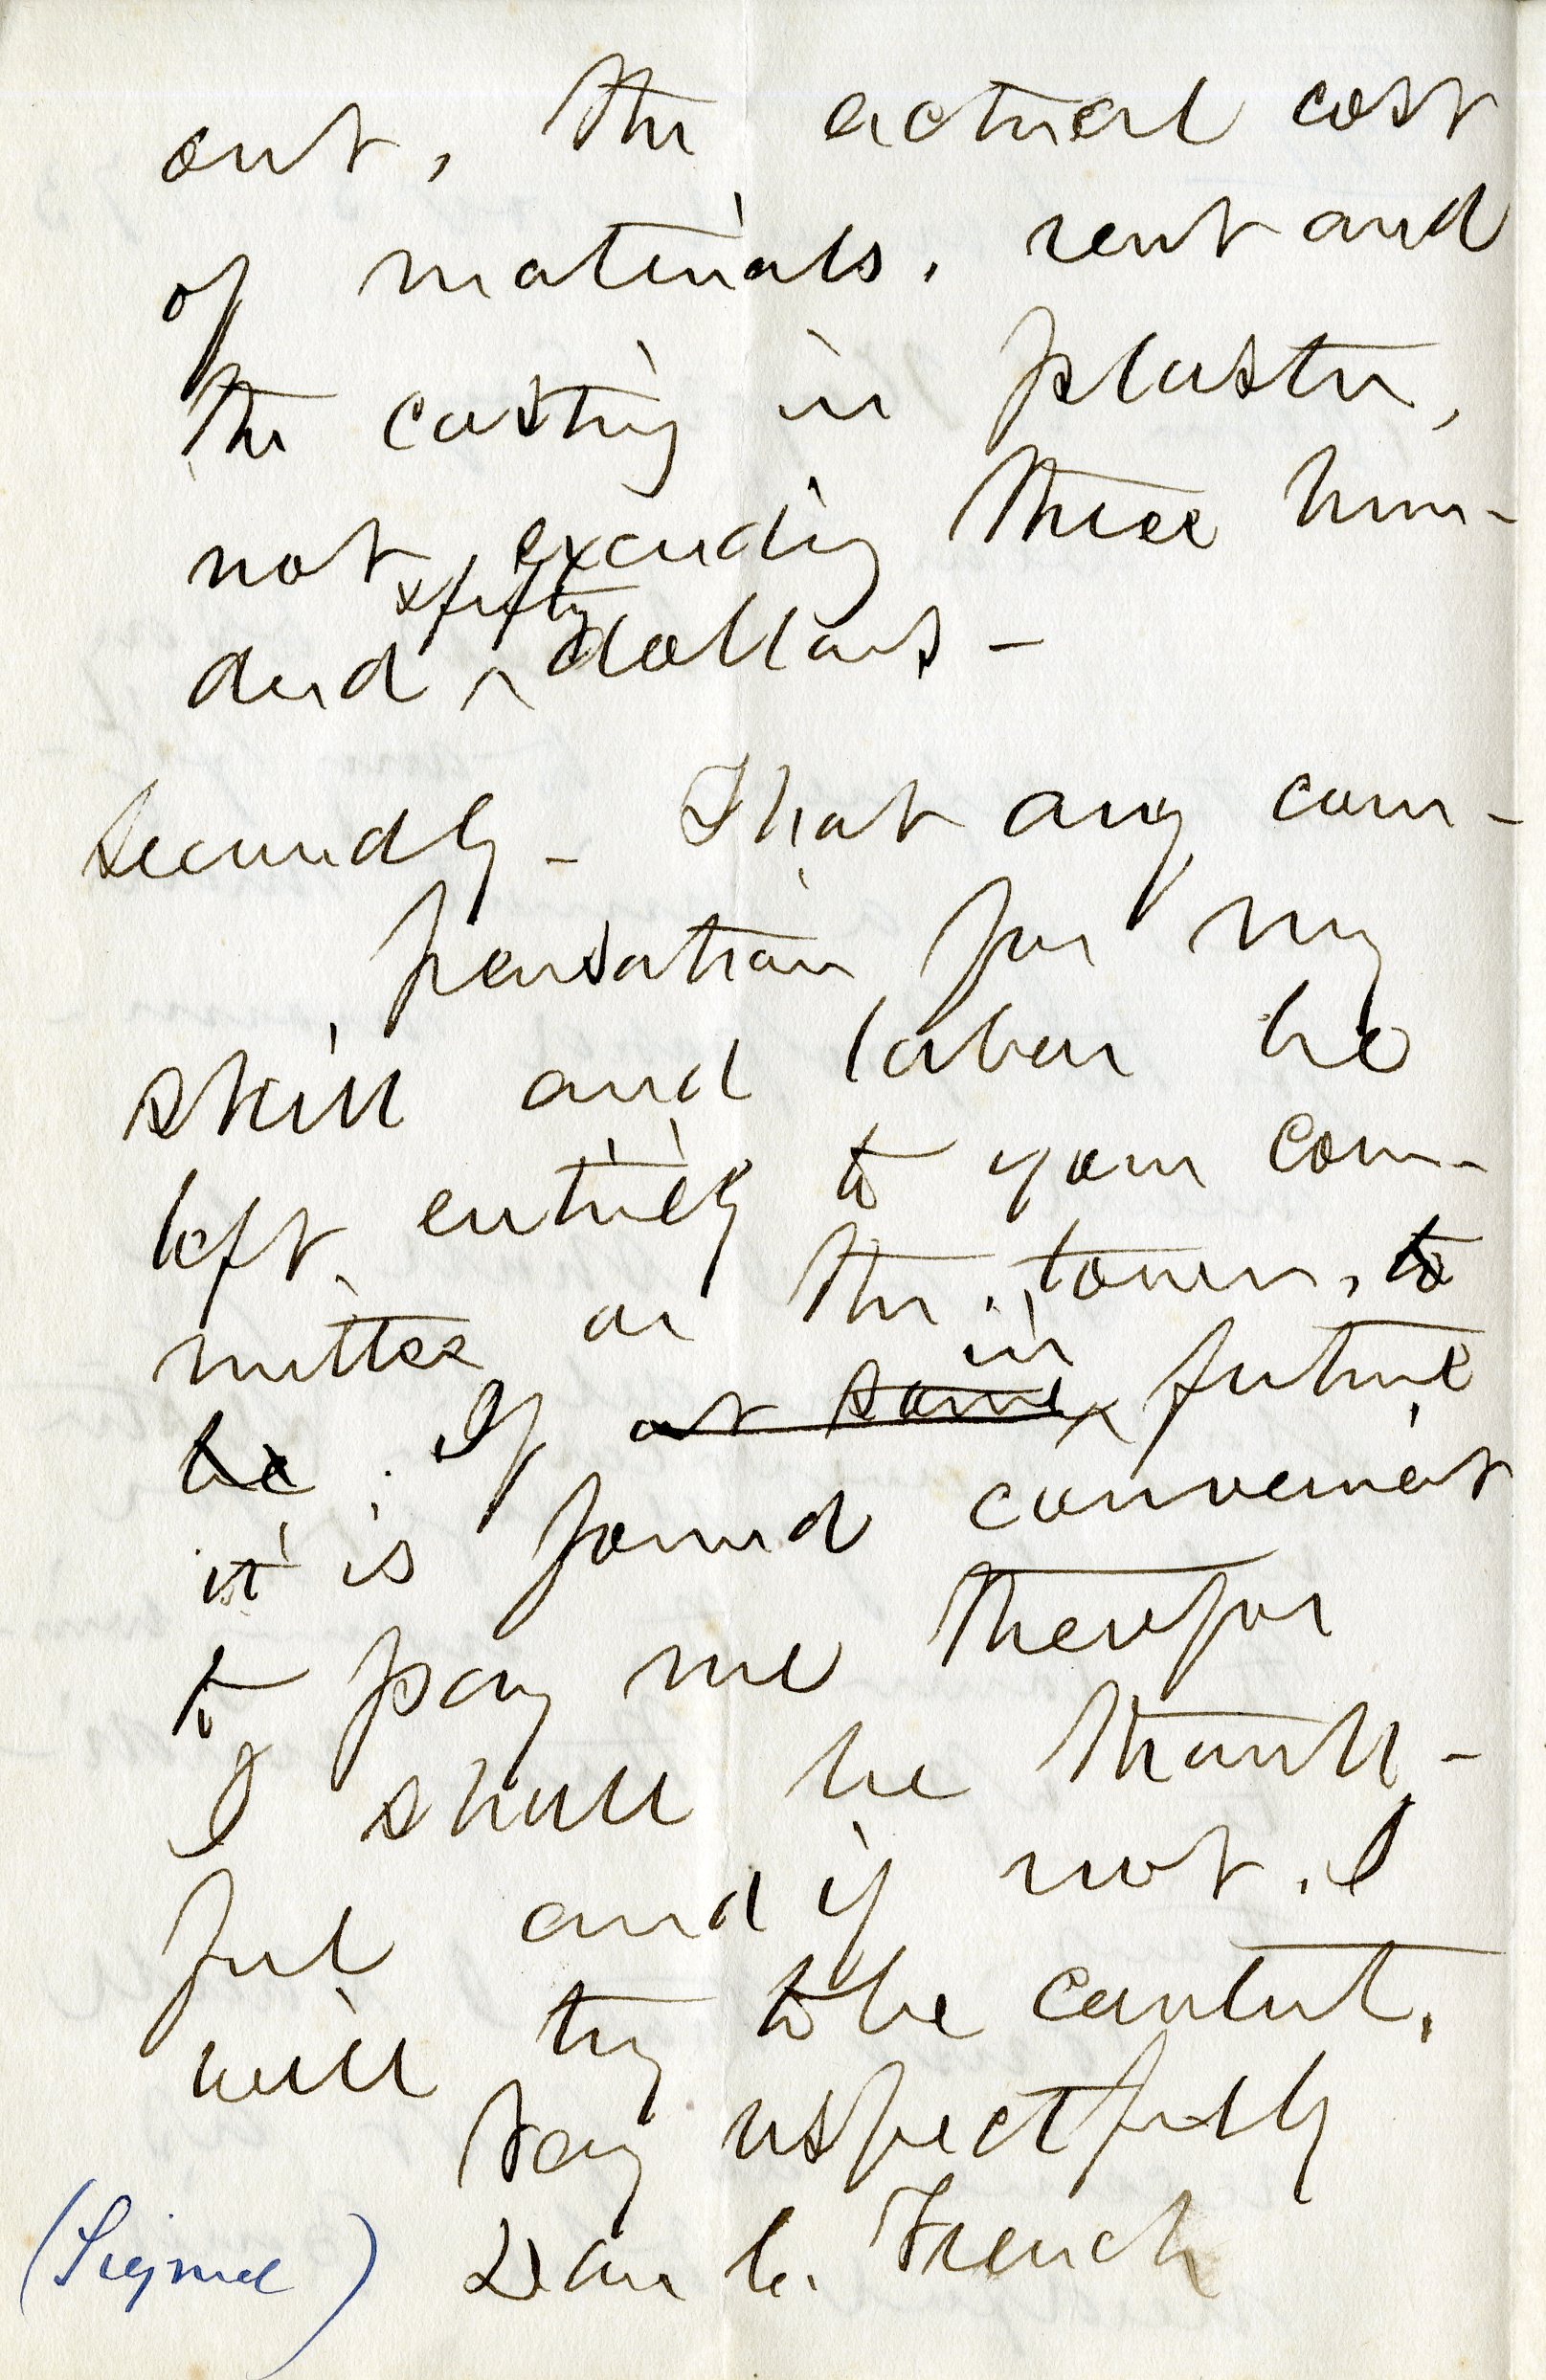 out, the actual cost
of materials, rent and
the casting in plaster,
not exceeding three hun-
& fifty
dred ^ dollars -
Secondly - That any com-
pensation for my
skill and labor be
left entirely to your com-
mittee or the town, to
in
be. If at some ^ future
it is found convenient
to pay me therefor
I shall be thank-
ful and if not, I
will try to be content.
Very respectfully
(Signed) Dan C. French